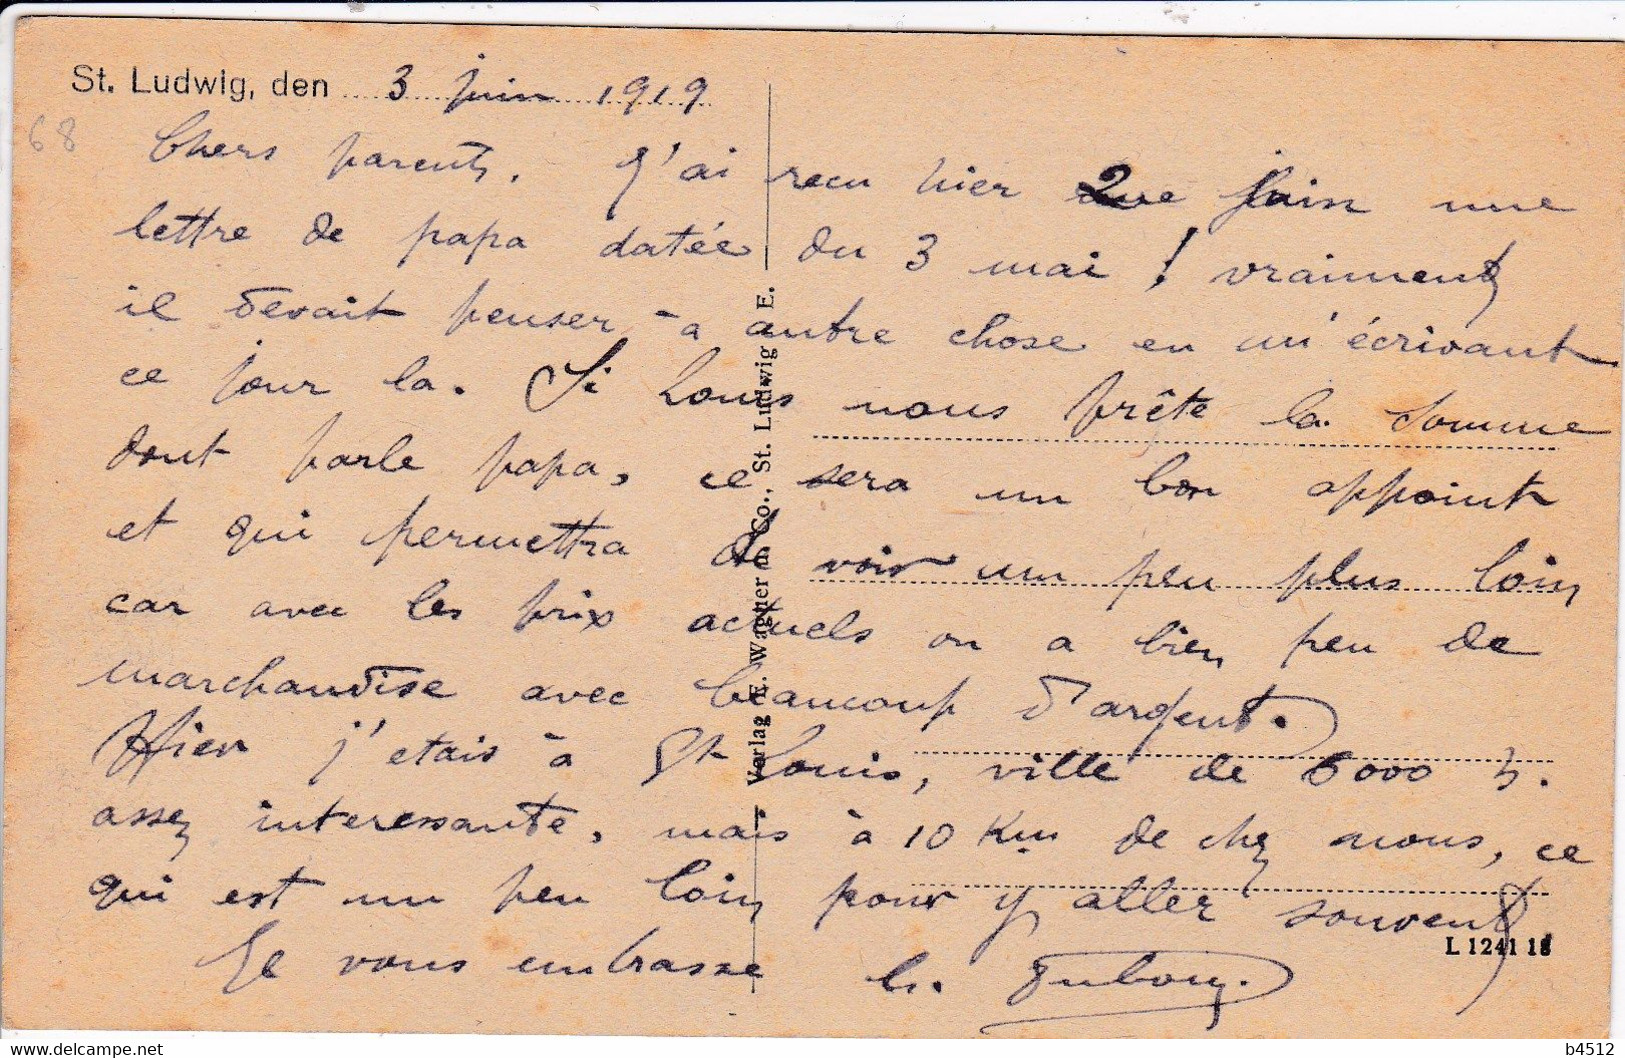 St. Ludwig, den 3 juin 1919
68
Chers parents. J'ai recu hier 2 juin une
lettre de papa datée du 3 mai ! vraiment
il devait penser à autre chose en m'écrivant
ce jour la. Si Louis nous prête la somme
dont parle papa, ce sera un bon appoint
et qui permettra de voir un peu plus loin
car avec les prix actuels on a bien peu de
marchandise avec beaucoup d'argent.
Hier j'etais à St Louis, ville de 6000 h.
assez interessante, mais à 10 Km de chez nous, ce
qui est un peu loin pour y aller souvent
Je vous embrasse h. Dubourg.
Verlag E. Wagner u. Co., St. Ludwig i. E.
L 1241 18
b4512